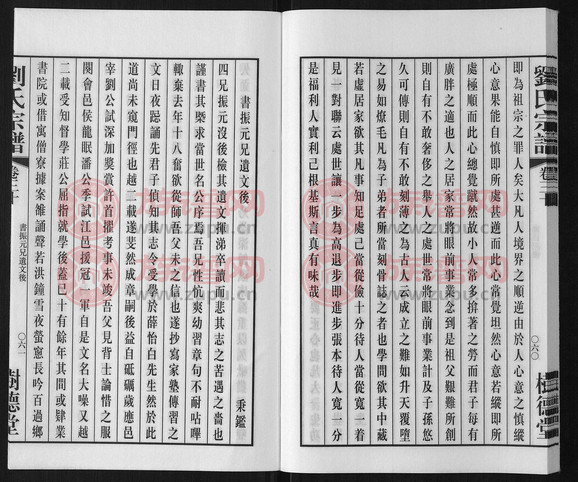 劉氏宗譜
卷三十
〇六〇
樹德堂
即為祖宗之罪人矣大凡人境界之順逆由於人心意之慎縱
心意果能自慎即所處甚逆而此心常覺坦然心意若縱即所
處極順而此心總覺蹴然故小人常多揜著之勞而君子每有
廣胖之適也人之居家當將眼前事業念到是祖父艱難所創
則自有不敢奢侈之舉人之處世常將眼前事業計及子孫悠
久可傳則自有不敢刻薄之為古人云成立之難如升天覆墮
之易如燎毛凡為子弟者所當刻骨誌之者也學問欲其中藏
若虛居家欲其凡事知足處己當從儉十分待人當從寬一着
見一對聯云處世讓一步為高退步即進步張本待人寬一分
是福利人實利己根基斯言真有味哉
書振元兄遺文後
秉鑑
四兄振元沒後檢其遺文揮涕卒讀而悲其志之苦遇之嗇也
謹書其槩求當世名公序焉吾兄性忼爽幼習章句不耐咕嗶
輒棄去年十八奮欲從師吾父未之信也遂抄寫家塾傳習之
文日夜踮誦先君子始知其志令愛學於薛怡白先生然於此
道尚未窺門徑也越二載遂斐然成章嗣後益自砥礪歲應邑
宰劉公試深加獎賞許首擢考事未竣吾父見背士論惜之服
闋會邑侯龍眠潘公季試江邑援冠一軍自是文名大噪又越
二載受知督學莊公屈指就學後蓋已十有餘年其間或肄業
書院或借寓僧寮據案雒誦聲若洪鐘雪夜螢窻長吟百過鄉
劉氏宗譜
卷三十
書振元兄遺文後
〇六一
樹德堂
www.zupu.cn
www.zupu.cn